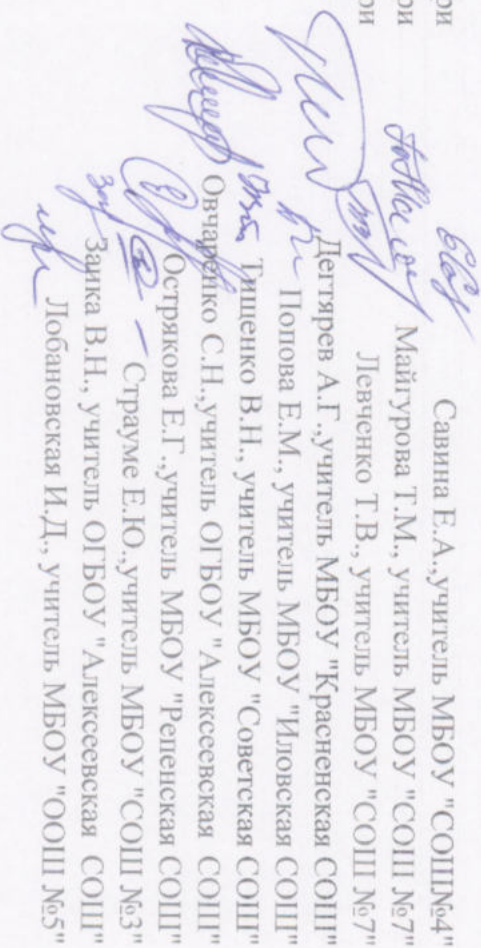 ри
ри
ри
Савина Е.А.,учитель МБОУ "СОШ№4"
Майгурова Т.М., учитель МБОУ "СОШ №7"
Левченко Т.В., учитель МБОУ "СОШ №7"
Дегтярев А.Г.,учитель МБОУ "Красненская СОШ"
Попова Е.М., учитель МБОУ "Иловская СОШ"
Тищенко В.Н., учитель МБОУ "Советская СОШ"
Овчаренко С.Н.,учитель ОГБОУ "Алексеевская СОШ"
Острякова Е.Г.,учитель МБОУ "Репенская СОШ"
Страуме Е.Ю.,учитель МБОУ "СОШ №3"
Заика В.Н., учитель ОГБОУ "Алексеевская СОШ"
Лобановская И.Д., учитель МБОУ "ООШ №5"